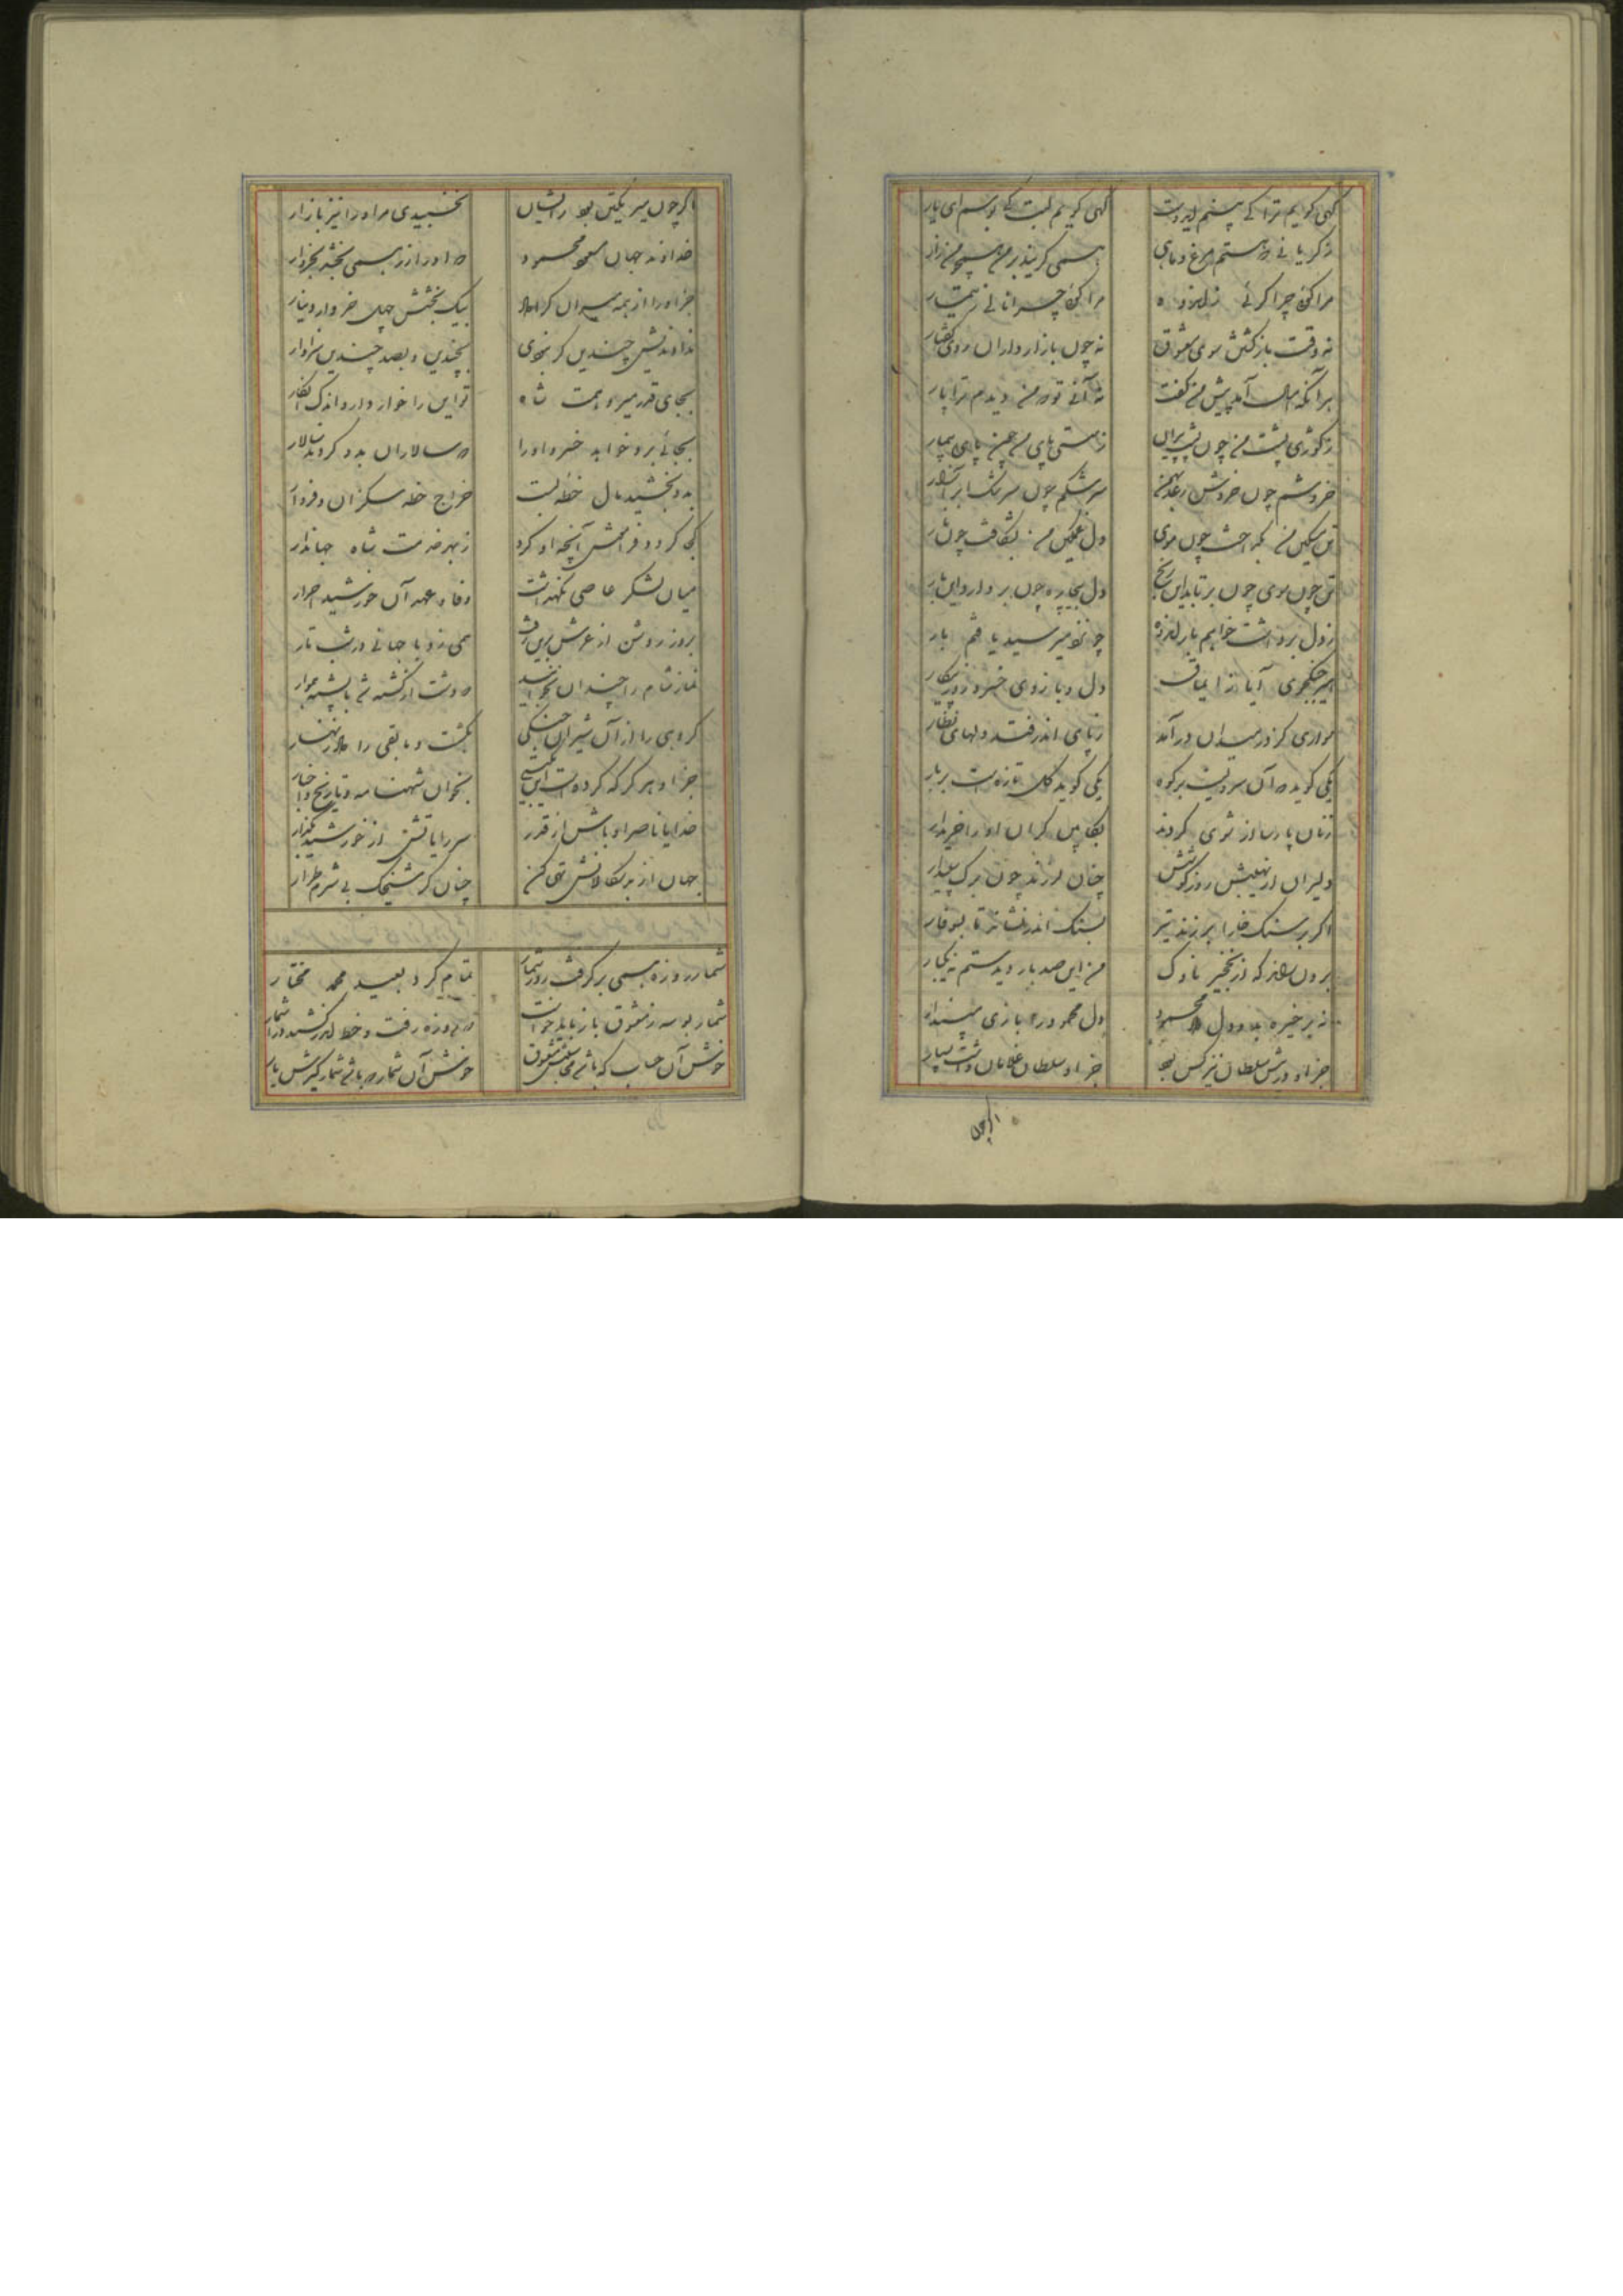 گهی گویم ترا کی بینم ای دوست گهی گویم لبت کی بوسم ای یار
ز گریانی که هستم مرغ و ماهی همی گریند بر من همچو من زار
مرا گوئی چرا گرئی ز اندوه مرا گوئی چرا نالی ز تیمار
نه وقت بازگشتن سوی معشوق نه چون بازارداران روی گفتار
هر آنکه امسال آمد پیش من گفت نه آنی تو که من دیدم ترا پار
ز کوژی پشت من چون پشت پیران ز سستی پای من چون پای بیمار
خروشم چون خروش رعد بهمن سرشکم چون سرشک ابر آذار
تن مسکین من بگداخت چون موی دل غمگین من بشکافت چون نار
تن چون موی چون برتابد این رنج دل بیچاره چون بردارد این بار
ز دل برداشت خواهم بار اندوه چو نزد میر سید یافتم بار
امیر جنگجوی ایاز ایماق دل و بازوی خسرو روز پیکار
سواری کز در میدان درآمد ز پای اندر فتد دلهای نظار
یکی گوید که آن سرویست بر کوه یکی گوید گل تازه است بر بار
زنان پارسا از شوی گردند بکابین گران او را خریدار
دلیران از نهیبش روز کوشش چنان لرزند چون برگ سپیدار
اگر بر سنگ خارا برزند تیر بسنگ اندر نشاند تا بسوفار
برون پراند از نخجیر ناوک من این صد بار دیدستم نه یکبار
نه بر خیره بدو دل داد محمود دل محمود را بازی مپندار
جز او در پیش سلطان نیز کس بود جز او سلطان غلامان داشت بسیار
اگر چون
اگر چون میر یکتن بود از ایشان نخسبیدی مر او را نیز بازار
خداوند جهان مسعود محمود که او را زر همی بخشد بخروار
جز او را از همه میران کرا داد بیک بخشش چهل خروار دینار
خداوندیش چندین کرنجوی بچندین و بصد چندین سزاوار
بجای قدر میر و همت شاه تو این را خوار دار و اندک انگار
بجائی برد خواهد خسرو او را که سالاران بدو گردند سالار
بدو بخشید مال خطه بست خراج خطه مکران و قزدار
کجا گردد فرامش آنچه او کرد ز بهر خدمت شاه جهاندار
میان لشکر عاصی نگهداشت وفا و عهد آن خورشید احرار
بروز روشن از غزنین برون رفت همی زد با جهانی در شب تار
نماز شام را چندان نخوابید که دشت از کشته شد با پشته هموار
گروهی را از آن شیران جنگی بکشت و مابقی را داد زنهار
جز او هرگز که کرده است این بگیتی بخوان شهنامه و تاریخ و اخبار
خدایا ناصر او باش از قدر سر رایاتش از خورشید بگذار
جهان از بدسگالانش تهی کن چنان کز شنبلک بی شرم طرار
شمار روزه همی بر گرفت روز شمار تمام کرد بعید محمد مختار
شمار بوسه ز معشوق باز باید خواست که روزه رفت و خط اندر کشید در شمار
خوش آن حساب که باشی محاسبش معشوق خوش آن شمار که باشی شمارگیرش یار